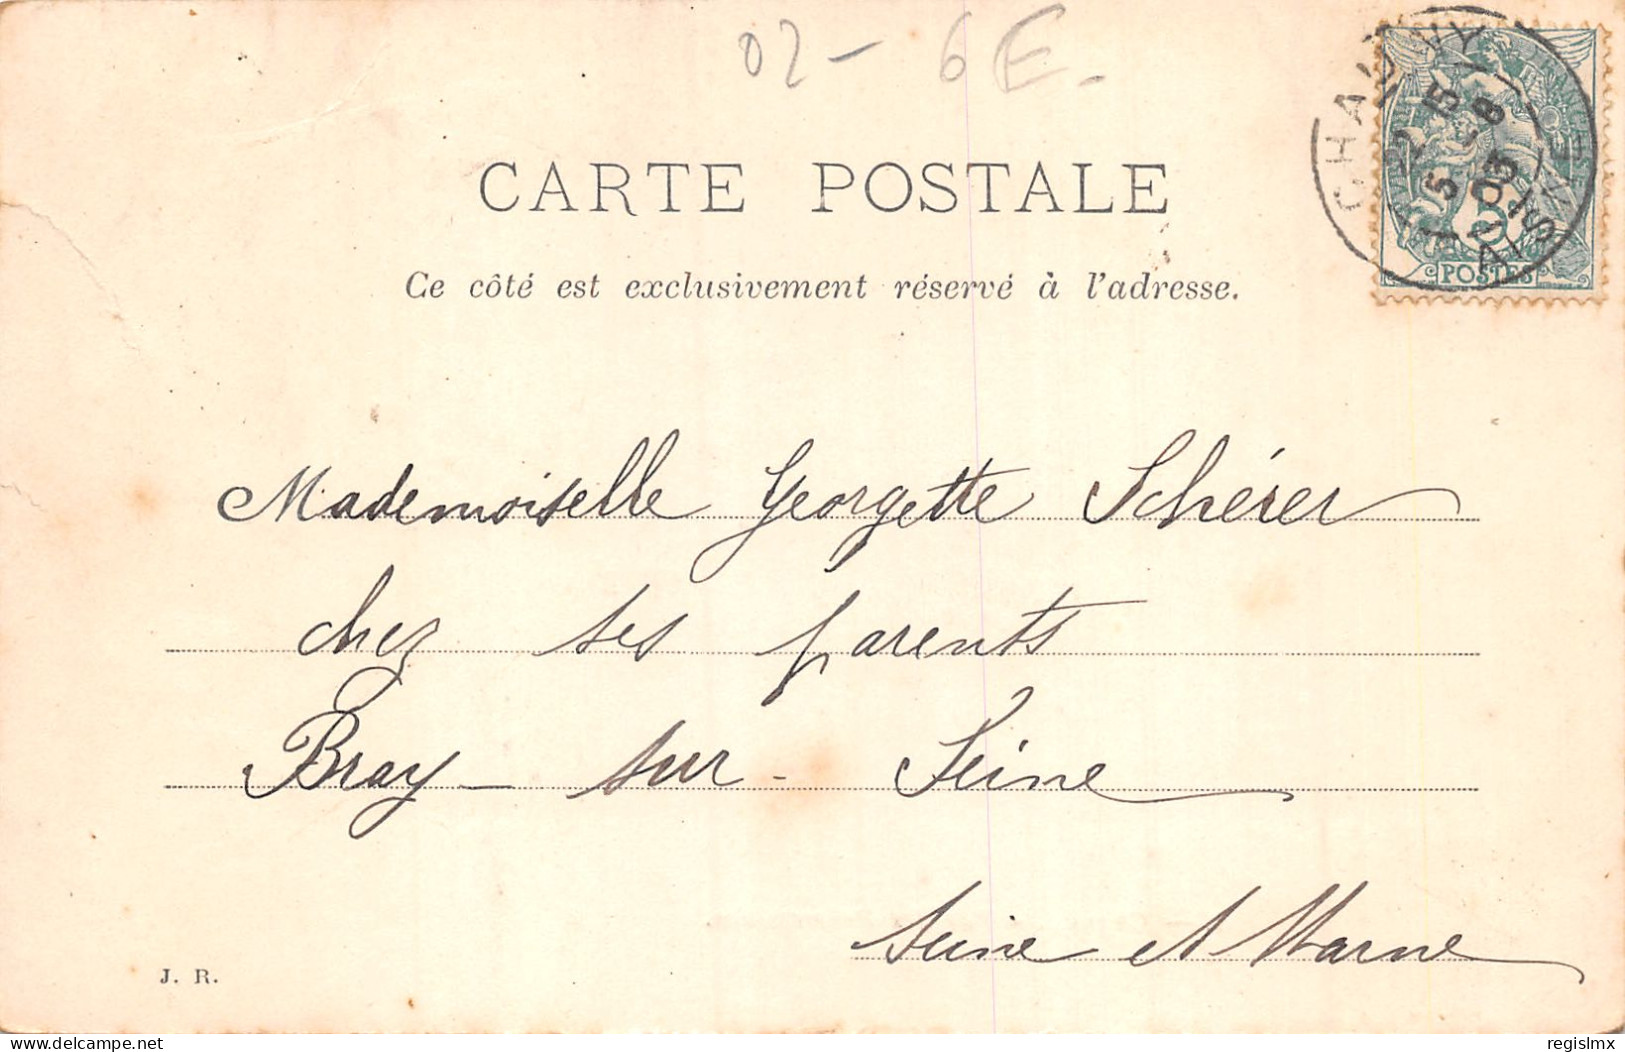 02 - 6E -
CHAUNY
AISNE
5
POSTES
CARTE POSTALE
Ce côté est exclusivement réservé à l'adresse.
Mademoiselle Georgette Schérer
chez ses parents
Bray-sur-Seine
Seine et Marne
J. R.
delcampe.net
regislmx